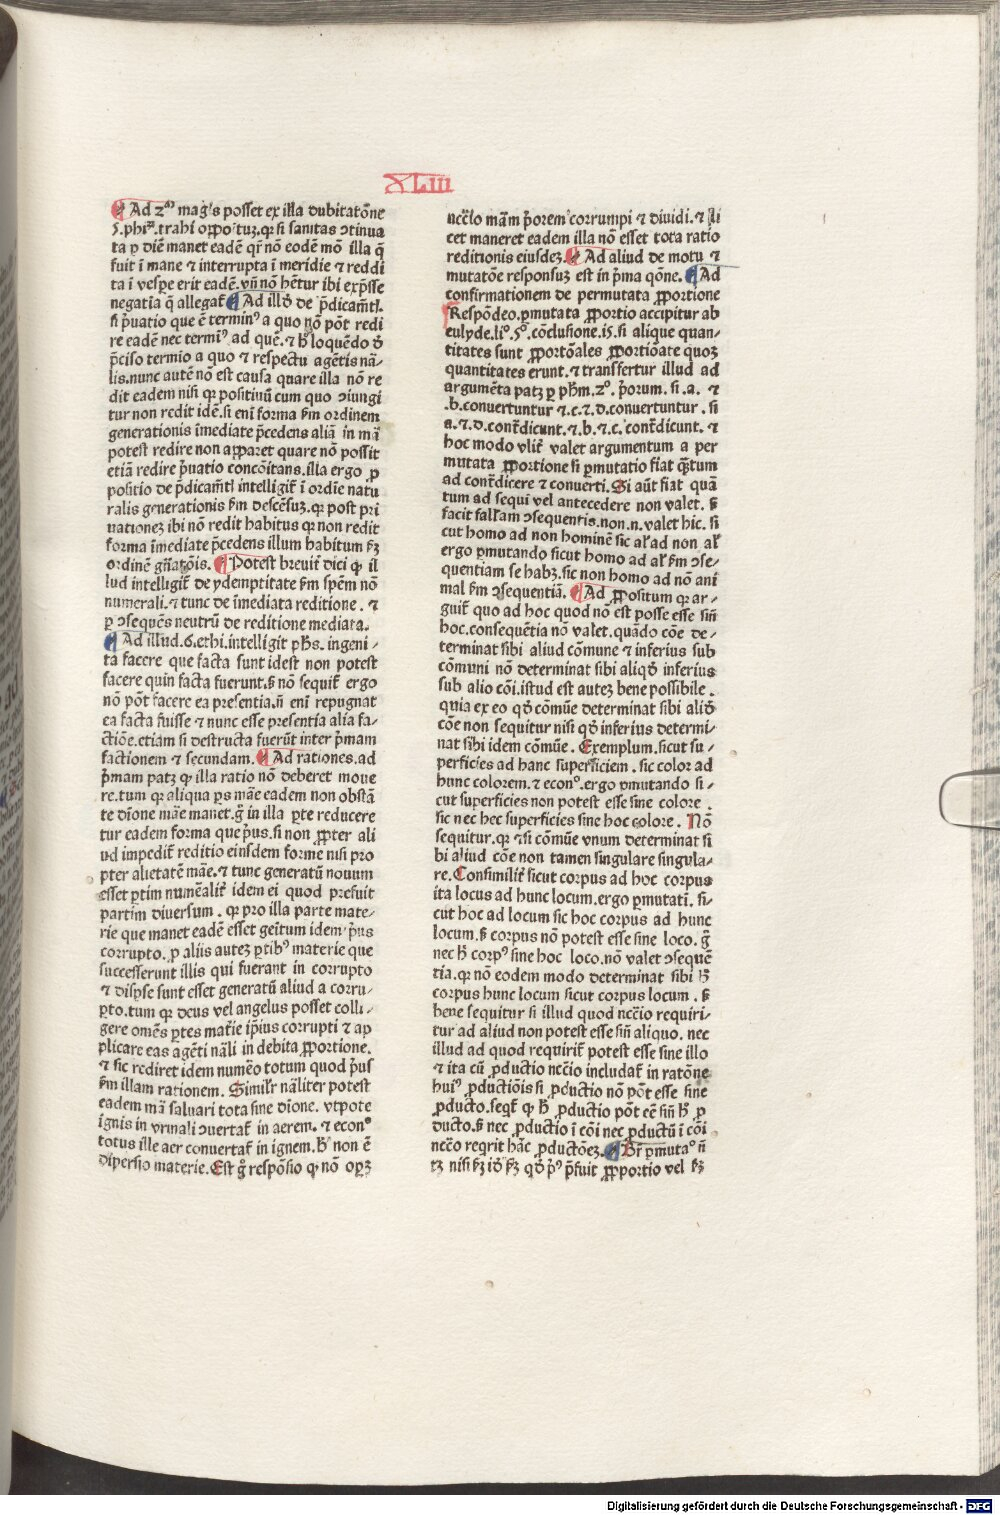 XLIII
¶ Ad 2ᵐ magis posset ex illa dubitatōne
5.phiꝝ.trahi oppoⁱtuꝫ.qꝛ si sanitas ↄtinua
ta p diē manet eadē qr̄ nō eodē mō illa q̄
fuit ī mane ⁊ interrupta ī meridie ⁊ reddi
ta ī vespe erit eadē.vn̄ nō hētur ibi exp̄sse
negatīa q̄ allegat̄ ¶ Ad illđ de p̄dicam̄tl.
si p̄uatio que ē terminꝰ a quo nō pōt redi
re eadē nec termīꝰ ad quē.⁊ hͦ loquēdo đ
p̄ciso termio a quo ⁊ respectu agētis nā-
lis.nunc autē nō est causa quare illa nō re
dit eadem nisi qꝛ positiuū cum quo ↄiungi
tur non redit idē.si enī forma ẜm ordinem
generationis īmediate p̄cedens aliā in mā
potest redire non apparet quare nō possit
etiā redire p̄uatio concōitans.illa ergo ꝓ
positio de p̄dicam̄tl intelligit̄ ī ordie natu
ralis generationis ẜm descēsuꝫ.qꝛ post pri
uationeꝫ ibi nō redit habitus qꝛ non redit
forma īmediate p̄cedens illum habitum ẜꝫ
ordinē gn̄atōis. ¶ Potest breuit̄ dici ꝙ il
lud intelligit̄ de ydemptitate ẜm spēm nō
numerali.⁊ tunc de īmediata reditione. ⁊
ꝑ ↄsequēs neutrū de reditione mediata.
¶ Ad illud.6.ethi.intelligit phs. ingeni-
ta facere que facta sunt idest non potest
facere quin facta fuerunt.ß nō sequit̄ ergo
nō pōt facere ea presentia.n̄ enī repugnat
ea facta fuisse ⁊ nunc esse presentia alia fa-
ctiōe.etiam si destructa fuerūt inter p̄mam
factionem ⁊ secundam. ¶ Ad rationes.ad
p̄mam patꝫ ꝙ illa ratio nō deberet moue
re.tum qꝛ aliqua ꝑs māe eadem non obstā
te dīone māe manet.ḡ in illa ꝑte reducere
tur eadem forma que p̄us.si non ꝓpter ali
ud impedit̄ reditio eiusdem forme nisi pro
pter alietatē māe.⁊ tunc generatū nouum
esset ꝑtim numēalit̄ idem ei quod prefuit
partim diuersum . qꝛ pro illa parte mate-
rie que manet eadē esset geītum idem p̄us
corrupto.ꝓ aliis auteꝫ ꝑtibꝰ materie que
successerunt illis qui fuerant in corrupto
⁊ disꝑse sunt esset generatū aliud a corru-
pto.tum qꝛ deus vel angelus posset colli-
gere omēs ꝑtes mat̄ie ip̄ius corrupti ⁊ ap
plicare eas agēti nāli in debita ꝓportione.
⁊ sic rediret idem numēo totum quod p̄us
ẜm illam rationem. Similr̄ nāliter potest
eadem mā saluari tota sine dīone. vtpote
ignis in vrinali ↄuertat̄ in aerem. ⁊ econͦ
totus ille aer conuertat̄ in ignem.hͦ non ē
disꝑsio materie.Est ḡ respōsio ꝙ nō opꝫ
ncc̄io mām p̄orem corrumpi ⁊ diuidi.⁊ li
cet maneret eadem illa nō esset tota ratio
reditionis eiusdeꝫ. ¶ Ad aliud de motu ⁊
mutatōne responsuꝫ est in p̄ma qōne. ¶ Ad
confirmationem de permutata ꝓportione
Respōdeo.ꝑmutata ꝓportio accipitur ab
eulyde.liͦ.5ͦ.cōclusione.15.si alique quan-
titates sunt ꝓportōales ꝓportiōate quoꝫ
quantitates erunt.⁊ transfertur illud ad
argumēta patꝫ ꝑ phm.2ͦ. p̄orum. si .a. ⁊
.b.conuertuntur ⁊.c.⁊.d.conuertuntur. si
a.⁊.d.cont̄dicunt.⁊.b.⁊.c.cont̄dicunt. ⁊
hoc modo vlit̄ valet argumentum a per
mutata ꝓportione si ꝑmutatio fiat q̄tum
ad cont̄dicere ⁊ conuerti.Si aūt fiat quā
tum ad sequi vel antecedere non valet. ß
facit fallam ↄsequentis.non.n.valet hic. si
cut homo ad non hominē sic al̄ ad non al̄
ergo ꝑmutando sicut homo ad al̄ ẜm ↄse-
quentiam se habꝫ.sic non homo ad nō ani
mal ẜm ↄsequentiā. ¶ Ad ꝓpositum qꝛ ar-
guit̄ quo ad hoc quod nō est posse esse sin̄
hoc.consequētia nō valet.quādo cōe de-
terminat sibi aliud cōmune ⁊ inferius sub
cōmuni nō determinat sibi aliqđ inferius
sub alio cōi.istud est auteꝫ bene possibile.
quia ex eo qđ cōmūe determinat sibi aliđ
cōe non sequitur nisi qđ inferius determi-
nat sibi idem cōmūe. Exemplum.sicut su-
perficies ad hanc superficiem . sic color ad
hunc colorem.⁊ econͦ.ergo ꝑmutando si-
cut superficies non potest esse sine colore .
sic nec hec superficies sine hoc colore . Nō
sequitur.qꝛ ⁊si cōmūe vnum determinat si
bi aliud cōe non tamen singulare singula-
re.Consimilit̄ sicut corpus ad hoc corpus
ita locus ad hunc locum.ergo ꝑmutatī. si-
cut hoc ad locum sic hoc corpus ad hunc
locum.ß corpus nō potest esse sine loco. ḡ
nec hͦ corpꝰ sine hoc loco.nō valet ↄsequē
tia.qꝛ nō eodem modo determinat sibi hͦ
corpus hunc locum sicut corpus locum . ß
bene sequitur si illud quod ncc̄io requiri-
tur ad aliud non potest esse sin̄ aliquo. nec
illud ad quod requirit̄ potest esse sine illo
⁊ ita cū ꝓductio ncc̄io includat̄ in ratōne
huiꝰ ꝓductiōis si ꝓductio nō pōt esse sine
ꝓducto.seqt̄ ꝙ hͦ ꝓductio pōt eē sin̄ hͦ ꝓ
ducto.ß nec ꝓductio ī cōi nec ꝓductū ī cōi
necc̄o reqrit hāc ꝓductōeꝫ. ¶ Br̄ ꝑmutaͦ n̄
tꝫ nisi ẜꝫ iđ ẜꝫ qđ p̄ꝰ p̄fuit ꝓportio vel ẜꝫ
Digitalisierung gefördert durch die Deutsche Forschungsgemeinschaft - DFG